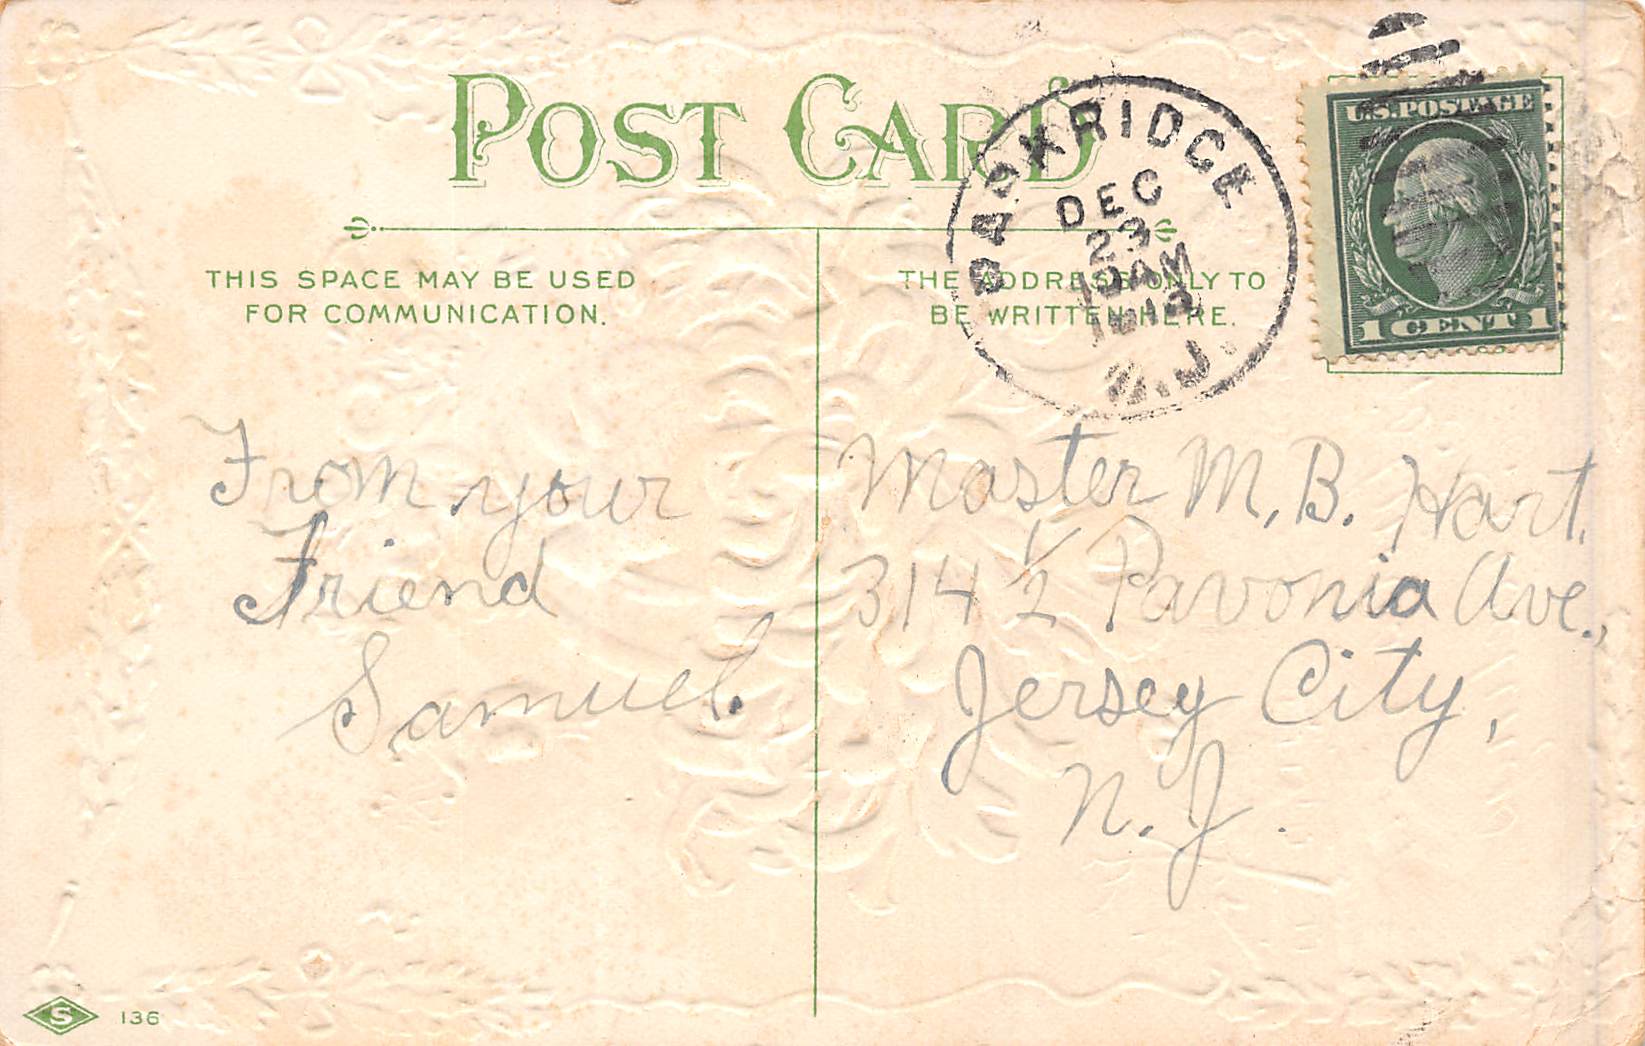 POST CARD
THIS SPACE MAY BE USED
FOR COMMUNICATION.
THE ADDRESS ONLY TO
BE WRITTEN HERE.
PARK RIDGE
DEC
23
10 AM
N.J.
U.S. POSTAGE
1 CENT 1
From your
Friend
Samuel.
Master M. B. Hart.
314 1/2 Pavonia Ave.,
Jersey City,
N. J.
S 136